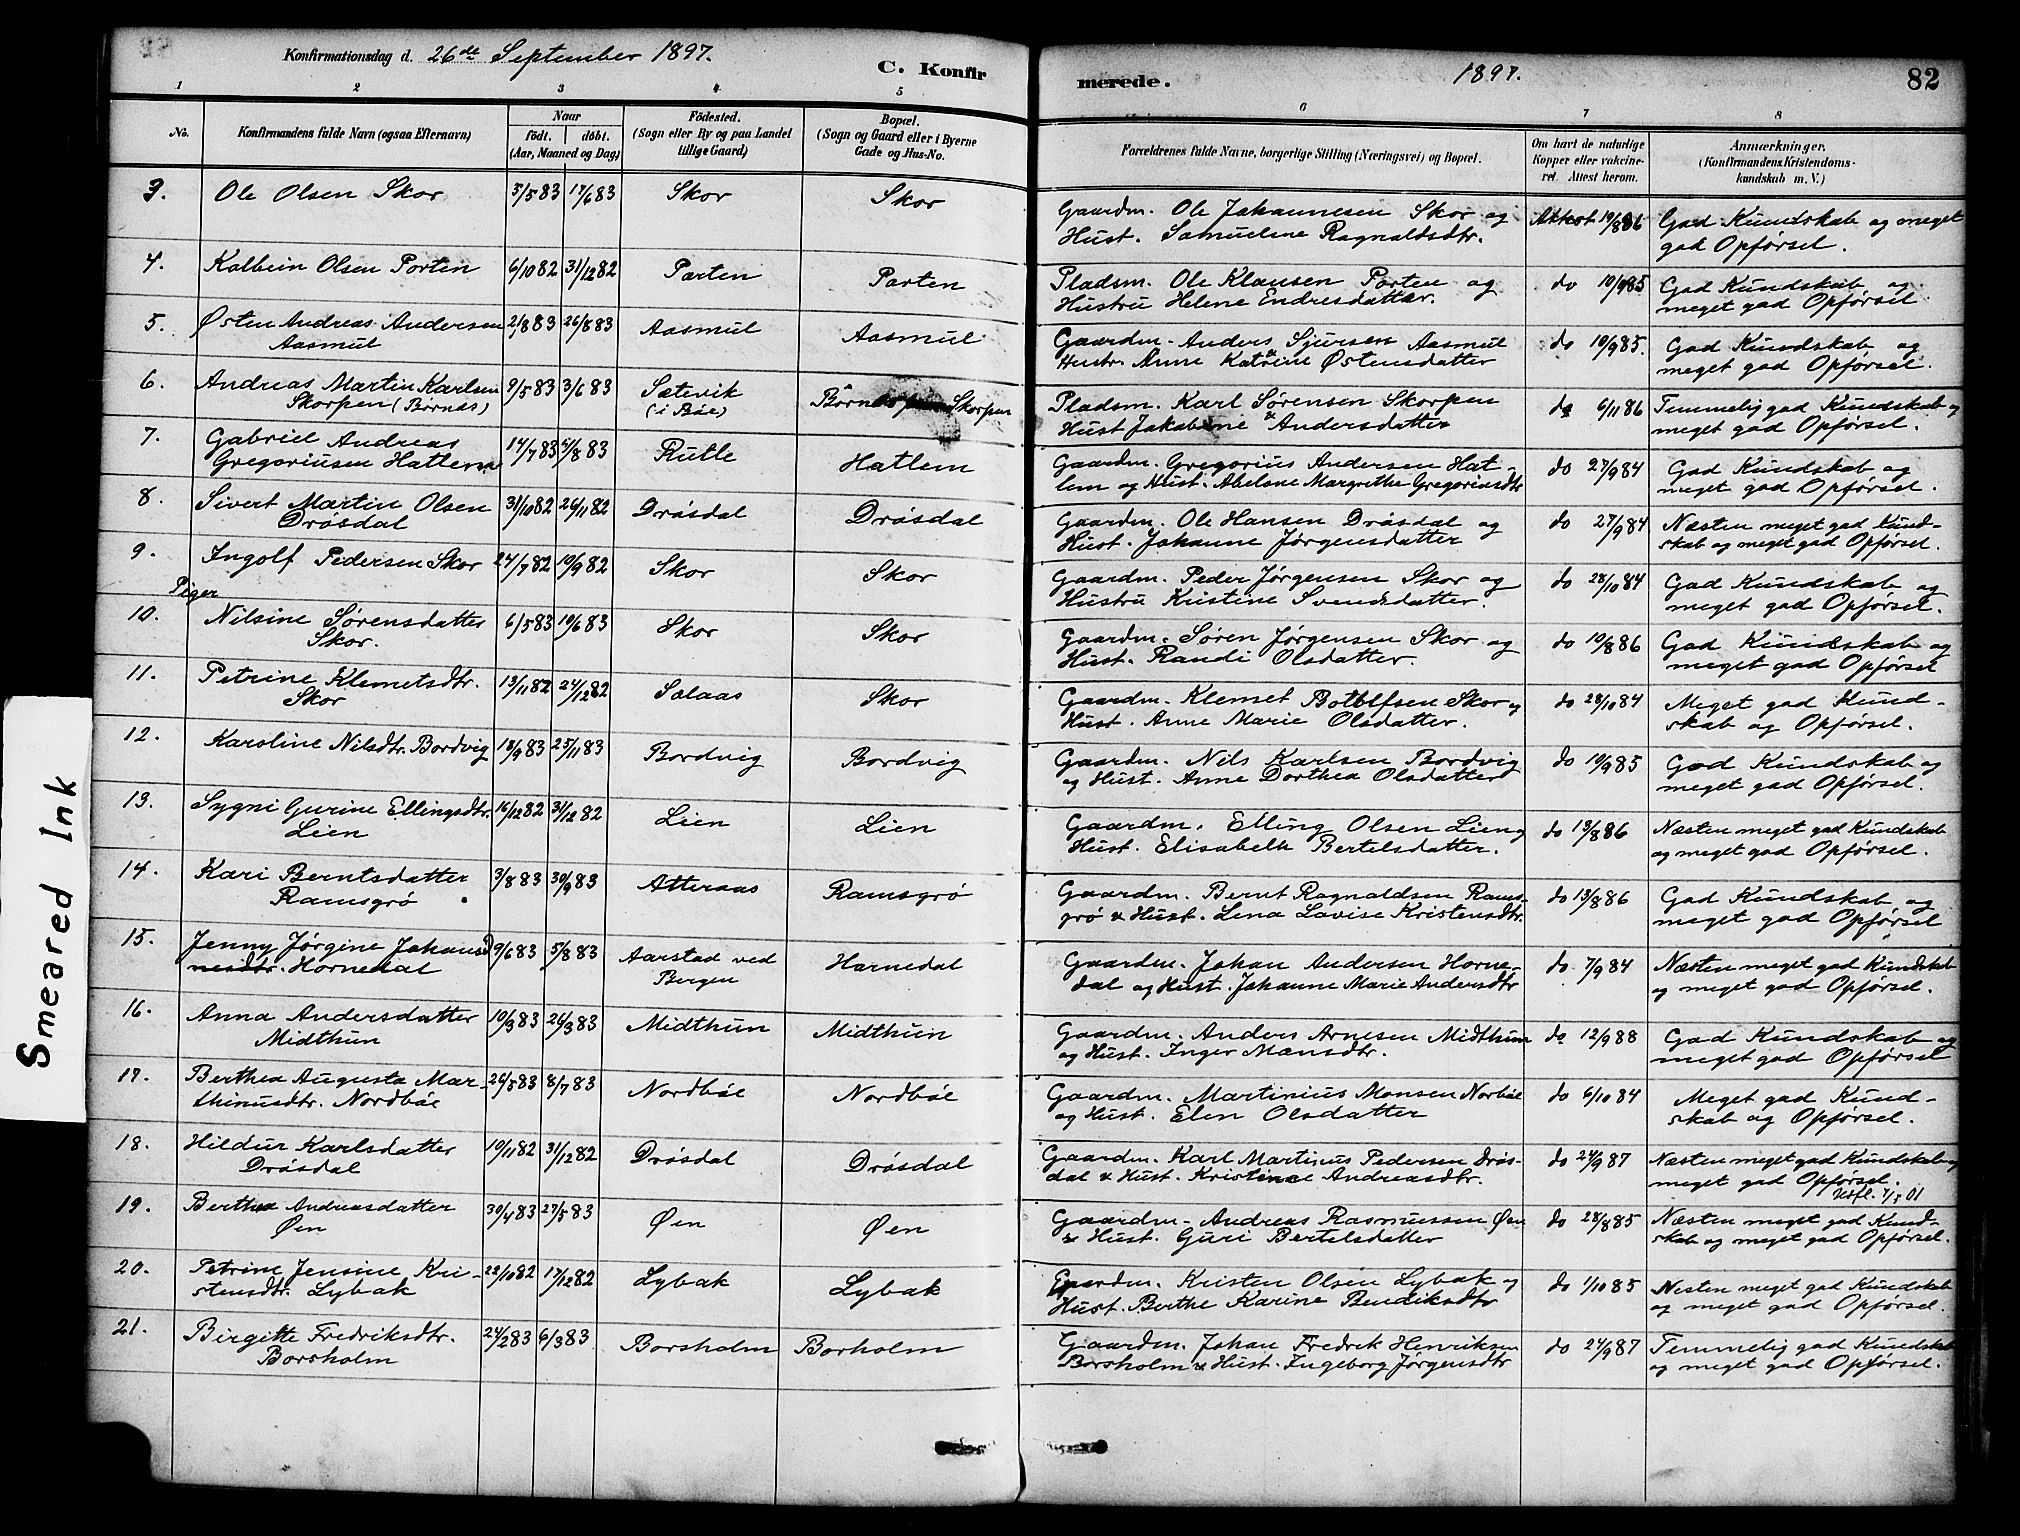 Konfirmationsdag d. 26de September 1897.
C. Konfirmerede.
1897.
82
1 2 3 4 5 6 7 8
No.
Konfirmandens fulde Navn (ogsaa Efternavn)
Naar
født. døbt.
(Aar, Maaned og Dag)
Fødested.
(Sogn eller By og paa Landet
tillige Gaard)
Bopæl.
(Sogn og Gaard eller i Byerne
Gade og Hus-No.
Forældrenes fulde Navne, borgerlige Stilling (Næringsvei) og Bopæl.
Om havt de naturlige
Kopper eller vakcine-
ret Attest herom.
Anmærkninger.
(Konfirmandens Kristendoms-
kundskab m. V.)
3. Ole Olsen Skor 5/5 83 17/6 83 Skor Skor Gaardm. Ole Johannesen Skor og
Hust. Samueline Ragnaldsdtr. Attest 10/8 86 God Kundskab og meget
god Opførsel.
4. Kolbein Olsen Porten 6/10 82 31/12 82 Porten Porten Pladsm. Ole Klausen Porten og
Hustru Helene Endresdatter. do 10/9 85 God Kundskab og
meget god Opførsel.
5. Østen Andreas Andersen
Aasmul 2/8 83 26/8 83 Aasmul Aasmul Gaardm. Anders Sjursen Aasmul
Hustr. Anne Katrine Østensdatter do 10/9 85. God Kundskab og
meget god Opførsel.
6. Andreas Martin Karlsen
Skorpen (Børnes) 9/5 83 3/6 83 Sætevik
(i Bøe) Skorpen Pladsm. Karl Sørensen Skorpen
& Hust Jakobine Andersdatter do 6/11 86 Temmelig god Kundskab og
meget god Opførsel.
7. Gabriel Andreas
Gregoriusen Hatlem 14/7 83 5/8 83 Rutle Hatlem Gaardm. Gregorius Andersen Hat-
lem og Hust. Abelone Margrethe Gregoriusdtr do 27/9 84 God Kundskab og
meget god Opførsel.
8. Sivert Martin Olsen
Drøsdal 31/10 82 26/11 82 Drøsdal Drøsdal Gaardm. Ole Hansen Drøsdal og
Hust. Johanne Jørgensdatter do 27/9 84 Næsten meget god Kund-
skab og meget god Opførsel.
9. Ingolf Pedersen Skor 24/7 82 10/9 82 Skor Skor Gaardm. Peder Jørgensen Skor og
Hustru Kristine Svendsdatter. do 28/10 84 God Kundskab og
meget god Opførsel.
Piger
10. Nilsine Sørensdatter
Skor. 6/5 83 10/6 83 Skor Skor Gaardm. Søren Jørgensen Skor og
Hust. Randi Olsdatter. do 10/8 86 God Kundskab og
meget god Opførsel
11. Petrine Klemetsdtr.
Skor 13/11 82 24/12 82 Solaas Skor Gaardm. Klemet Botolfsen Skor og
Hust. Anne Marie Olsdatter. do 28/10 84 Meget god Kund-
skab og Opførsel.
12. Karoline Nilsdtr. Bordvig 18/9 83 25/11 83 Bordvig Bordvig Gaardm. Nils Karlsen Bordvig
og Hust. Anne Dorthea Olsdatter do 10/9 85 God Kundskab og
meget god Opførsel.
13. Sygni Gurine Ellingsdtr.
Lien 16/12 82 31/12 82 Lien Lien Gaardm. Elling Olsen Lien og
Hust. Elisabeth Bertelsdatter. do 13/8 86 Næsten meget god Kundskab
og meget god Opførsel.
14. Kari Berntsdatter
Ramsgrø 3/8 83 30/9 83 Atteraas Ramsgrø Gaardm. Bernt Ragnaldsen Rams-
grø & Hust. Lena Lovise Kristensdtr. do 13/8 86 God Kundskab og
meget god Opførsel
15. Jenny Jørgine Johans
nesdtr. Hornedal 9/6 83 5/8 83 Aarstad ved
Bergen Hornedal Gaardm. Johan Andersen Horne-
dal og Hust. Johanne Marie Andersdtr do 7/9 84 Næsten meget god Kundskab
og meget god Opførsel.
16. Anna Andersdatter
Midthun 10/3 83 26/3 83 Midthun Midthun Gaardm. Anders Arnesen Midthun
og Hust. Inger Monsdtr. do 12/9 88 God Kundskab og
meget god Opførsel
17. Berthea Augusta Mar-
thinusdtr. Nordbøe 26/5 83 8/7 83 Nordbøe Nordbøe Gaardm. Martinius Monsen Norbøe
og Hust. Elen Olsdatter do 6/10 84 Meget god Kund-
skab og Opførsel.
18. Hildur Karlsdatter
Drøsdal 10/11 82 31/12 82 Drøsdal Drøsdal Gaardm. Karl Martinus Pedersen Drøs-
dal & Hust. Kristine Andreasdtr. do 24/9 87 Næsten meget god Kundskab og
meget god Opførsel.
Utfl. 7/5 01
19. Berthe Andreasdatter
Øen 30/4 83 27/5 83 Øen Øen Gaardm. Andreas Rasmussen Øen
& Hust. Guri Bertelsdatter do 28/8 85 Næsten meget god Kund-
skab og meget god Opførsel.
20. Petrine Jensine Kri-
stensdtr. Lybak 22/10 82 17/12 82 Lybak Lybak Gaardm. Kristen Olsen Lybak og
Hust. Berthe Karine Bendiksdtr do 1/10 85 Nesten meget god Kundskab
og meget god Opførsel.
21. Birgitte Fredriksdtr.
Borsholm 24/2 83 6/3 83 Borsholm Borholm Gaardm. Johan Fredrik Henriksen
Borsholm & Hust. Ingeborg Jørgensdtr do 24/9 87 Temmelig god Kundskab
og meget god Opførsel.
Smeared Ink